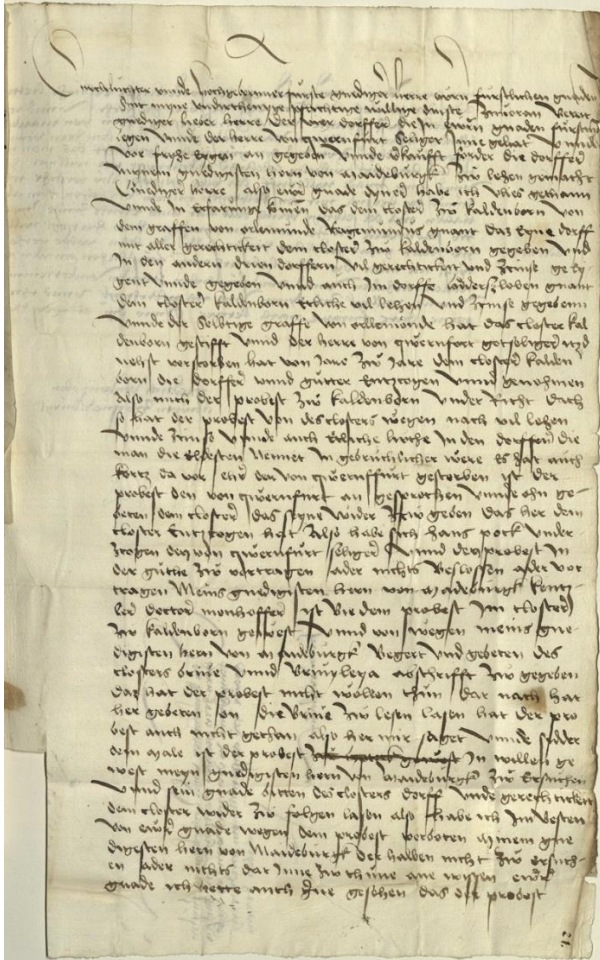 Durchlauchter unnde hochgebornner furste gnediger herre ewern furstlichen gnaden
sint myne undirthenige pflichtige willige dinste zuvoran bereit
gnediger lieber herre der vier dorffer die in ewrn gnaden furstenthum
legen unnde der herre von qwernfurt seliger inne gehat unnd
vor fryhe eygen an gegeben unnde vorkaufft forder die dorffer
mynem gnedigsten hern von Maideburgk zw lehen gemacht
Gnediger herre also ewr gnade habe ich vlies gethann
unnde in erfarunge komen das dem closter zw kaldenborn von
dem graffen von orlemunde gnant das eyne dorff
mit aller gerechtickeit dem closter zw kaldenborn gegeben und
in den andern drien dorffern vil gerechtickeit und zcinse ge ey
gent unnde gegeben unnd auch im dorffe gnant
dem closter kaldenborn etliche vil lehen und zcinse gegebenn
unnde der selbtige graffe von orllemonde hat das closter kal
denborn gestifft unnd der herre von qwernfort gotseliger itzd
nehst vorstorben hat von Jare zw Jare dem closter kalden
born die dorffer unnd gutter entzcogen unnd genohmen
also mich der probest zw kaldenborn under richt doch
so hat der probest von des closters wegen nach vil lehen
unnde zcinse unnde auch etliche lirche in den dorffern die
man die eldesten nennet in gebruchlicher were es hat auch
kortz da vor ehir der von qwernffurt gestorben ist der
probest den von qwernfurt an gesprochen unnde ohn ge
beten dem closter das seyne wider zcw geben das her dem
closter entzcogen het also habe sich hans pock under
zcogen den von qwernfurt seliger unnd den probest in
der guthe zw vortragen ader nichts beslossen ader vor
tragen Meins gnedigisten hern von Maideburgk kentz
ler doctor monhoffer ist bie dem probest im closter
zw kaldenborn gewest unnd von wegen meins gne
digisten hern von Maideburgk begert und gebeten des
closters brive unnd privileya abschrifft zw gegeben
das hat der probest nicht wollen thun dar nach hat
her gebeten on die brive zw lesen lasen hat der pro
best auch nicht gethan also her mir saget unnde sidder
dem male ist der probest in willen ge
west meyn gnedigisten hern von Maideburgk zw ersuchen
unnd sein gnade bitten des closters dorff unde gerechtickeit
dem closter wider zw folgen lasen also habe ich im besten
von ewer gnade wegen dem probest verboten mynem gne
digesten hern von Maideburgk der halben nicht zw ersuch
en ader nichts dar inne zw thune ane wissen ewer
gnade ich hette auch gerne gesehen das der probost